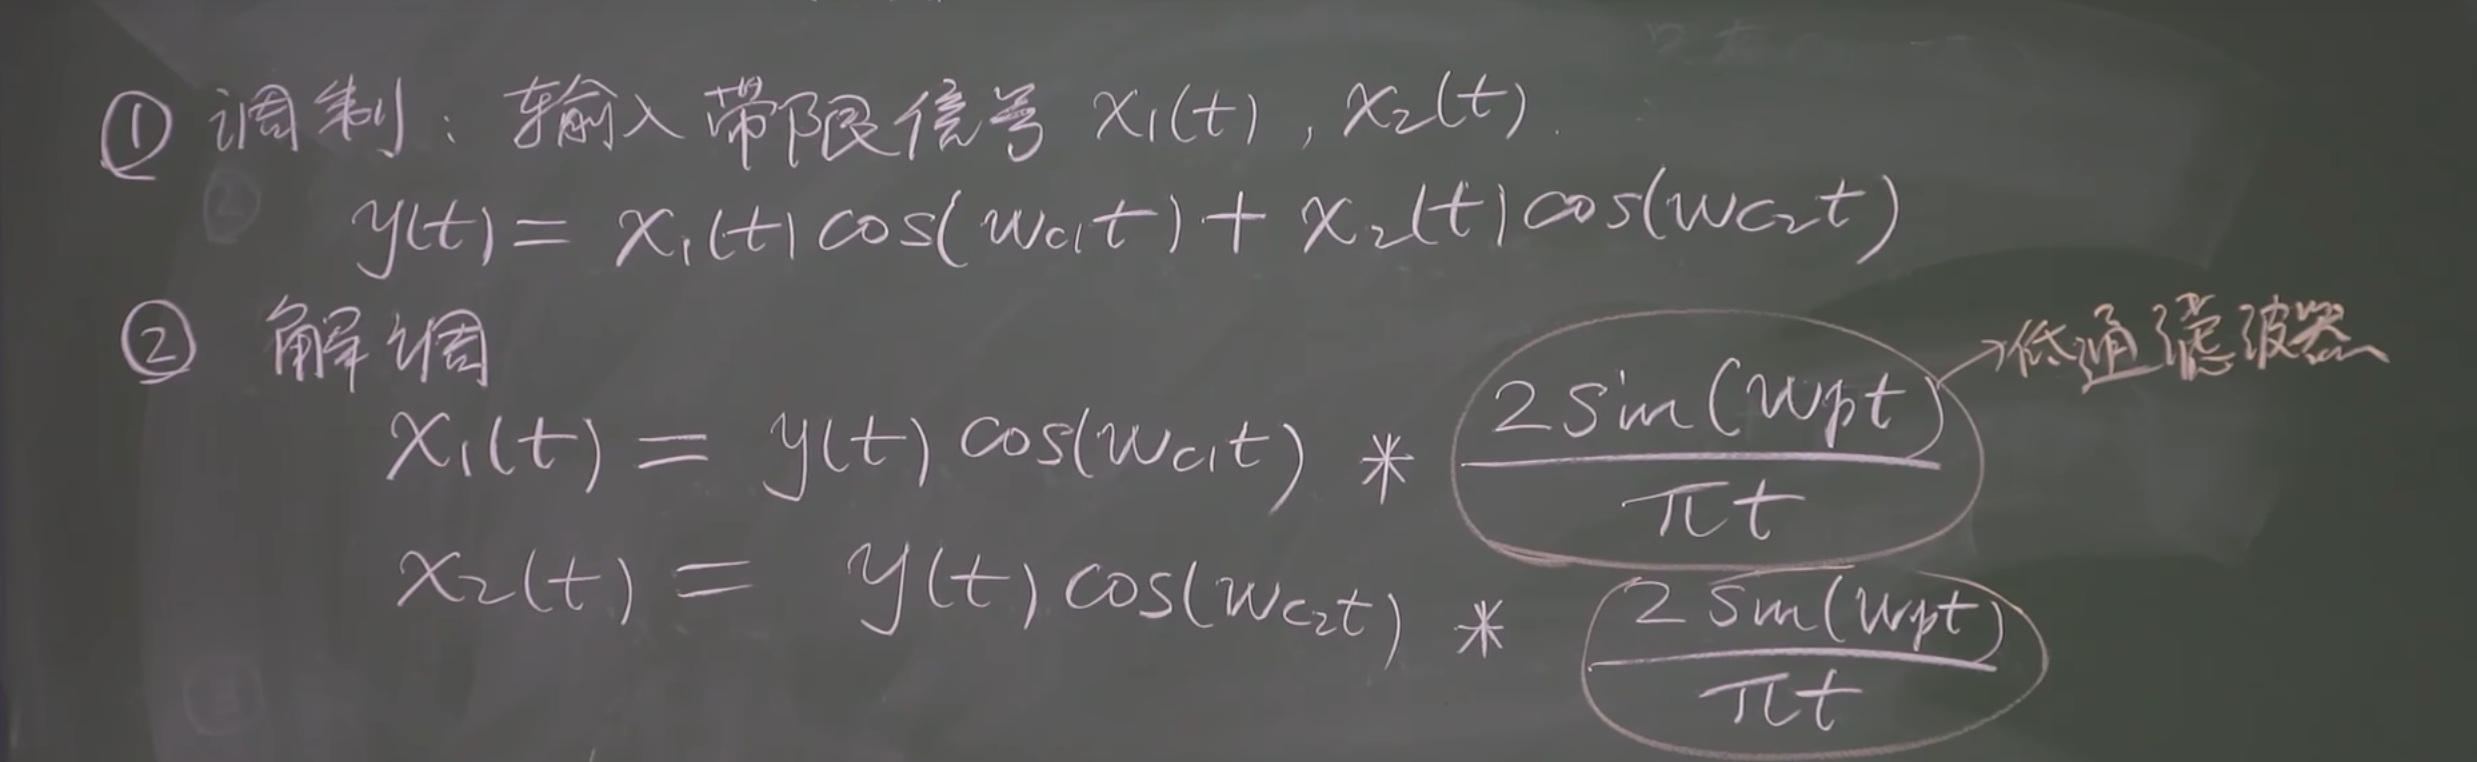 ① 调制：输入带限信号 x₁(t), x₂(t).
y(t) = x₁(t) cos(w_{c1}t) + x₂(t) cos(w_{c2}t)
② 解调
x₁(t) = y(t) cos(w_{c1}t) * \frac{2 sin(w_p t)}{πt} → 低通滤波器
x₂(t) = y(t) cos(w_{c2}t) * \frac{2 sin(w_p t)}{πt}